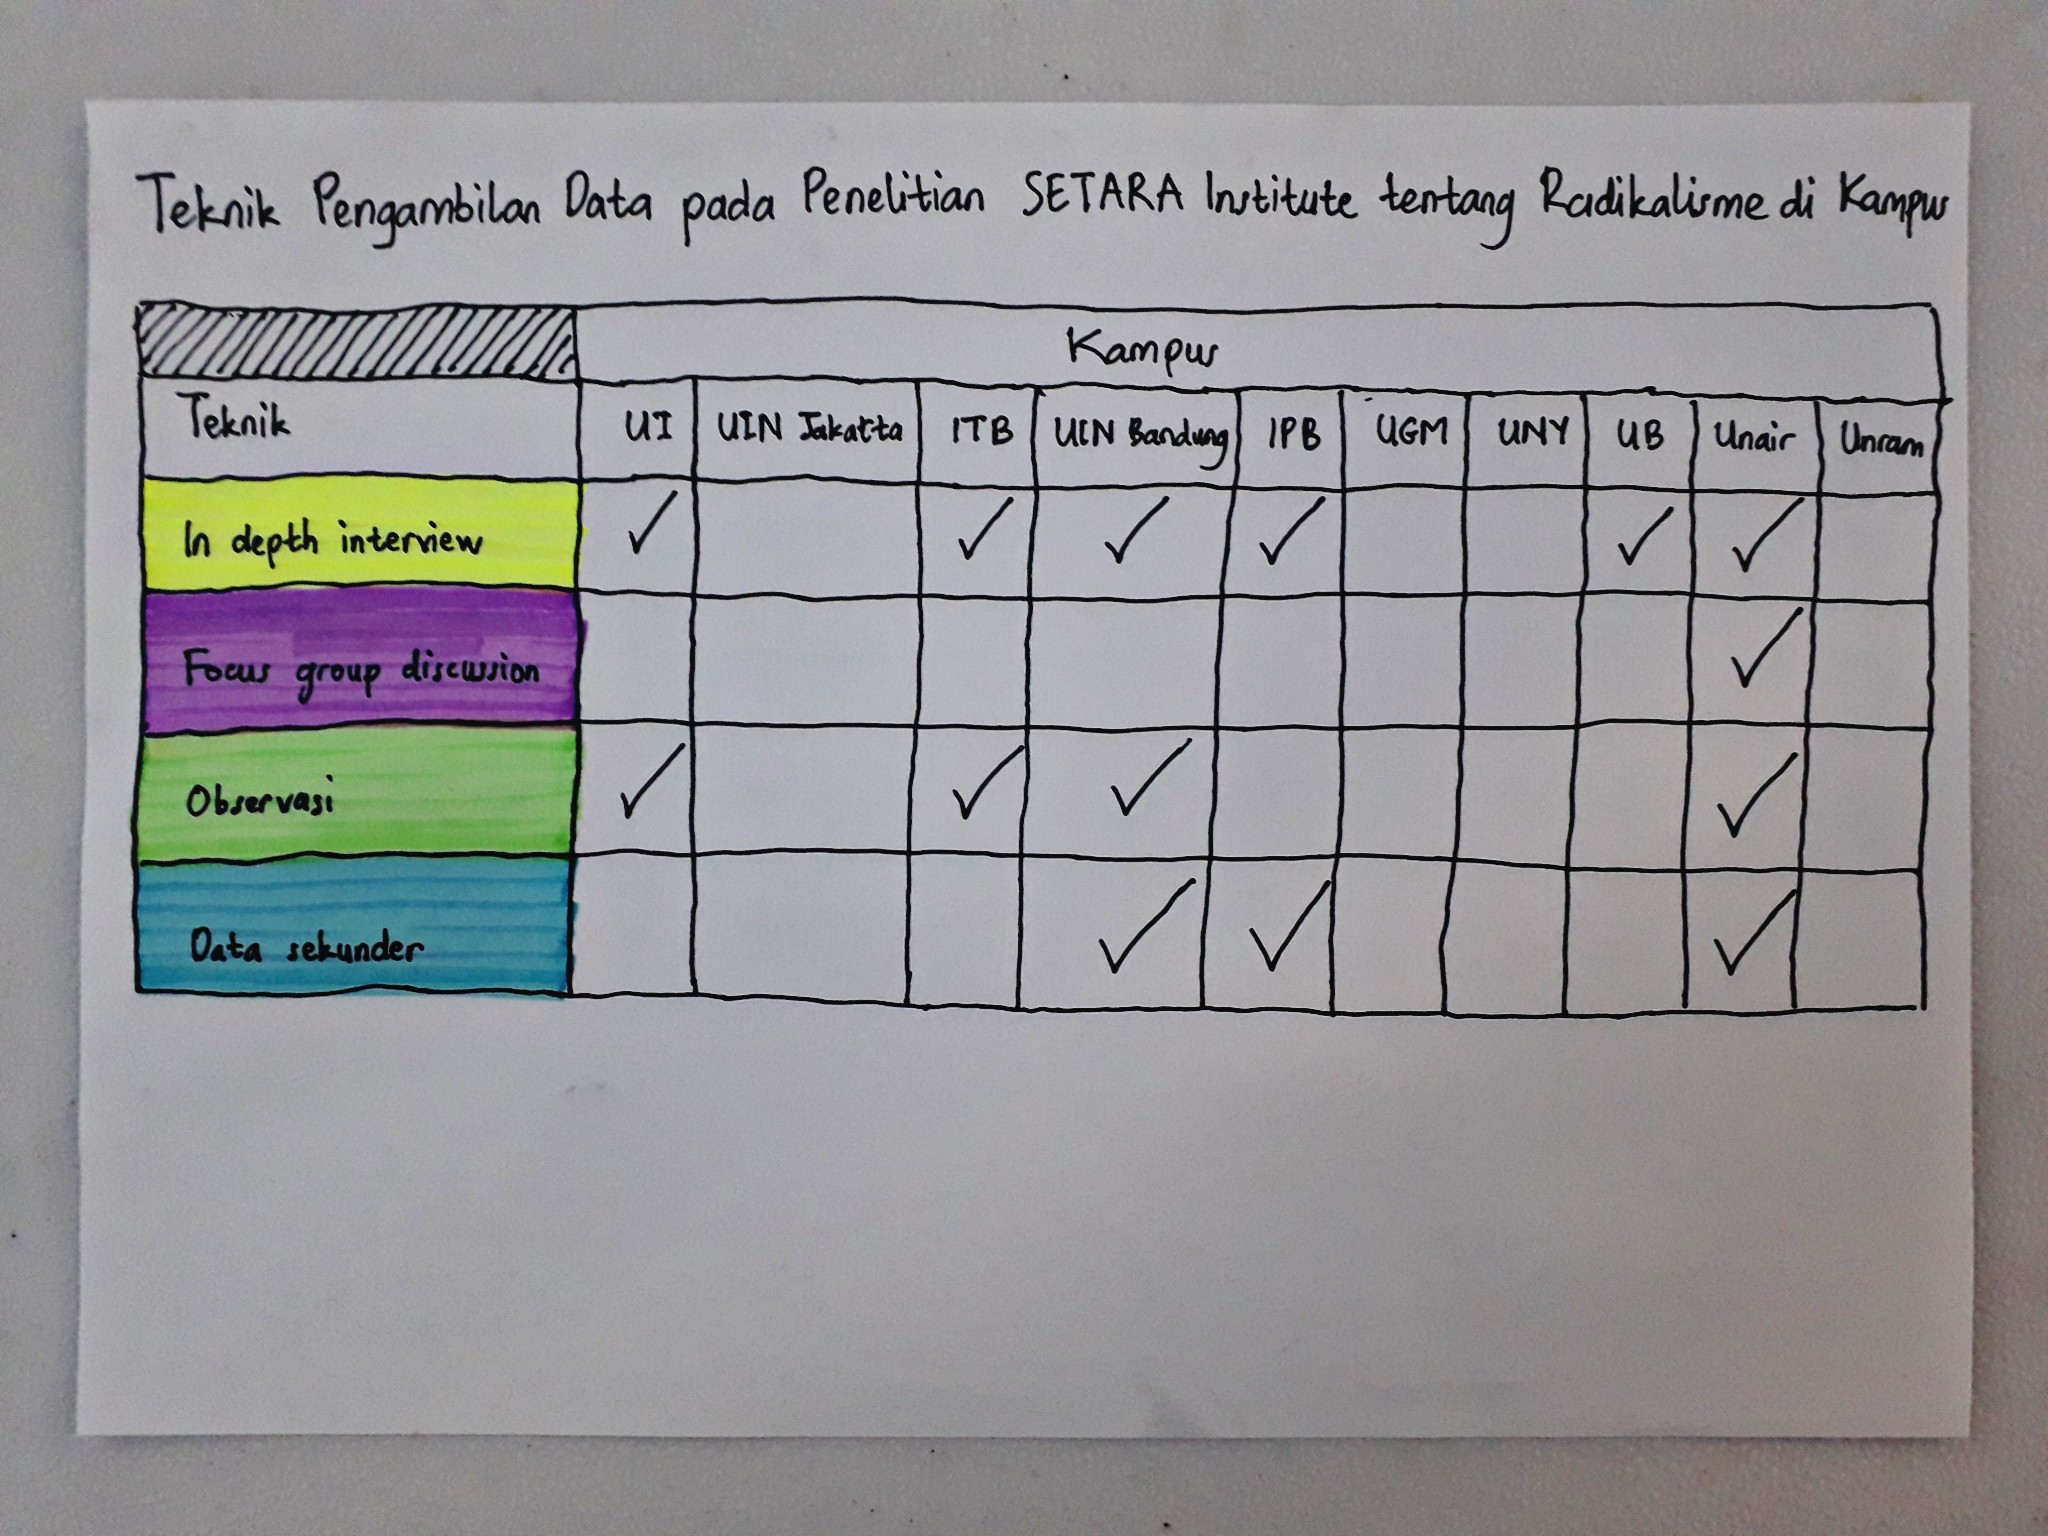 Teknik Pengambilan Data pada Penelitian SETARA Institute tentang Radikalisme di Kampus
Kampus
Teknik UI UIN Jakarta ITB UIN Bandung IPB UGM UNY UB Unair Unram
In depth interview ✓ ✓ ✓ ✓ ✓ ✓
Focus group discussion ✓
Observasi ✓ ✓ ✓ ✓
Data sekunder ✓ ✓ ✓